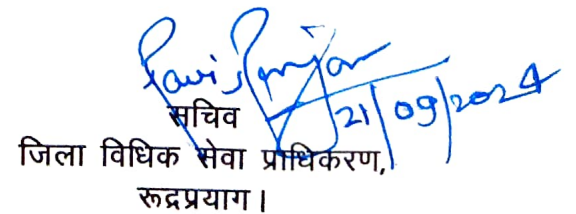 Ravi Ranjan
21/09/2024
सचिव
जिला विधिक सेवा प्राधिकरण,
रूद्रप्रयाग।